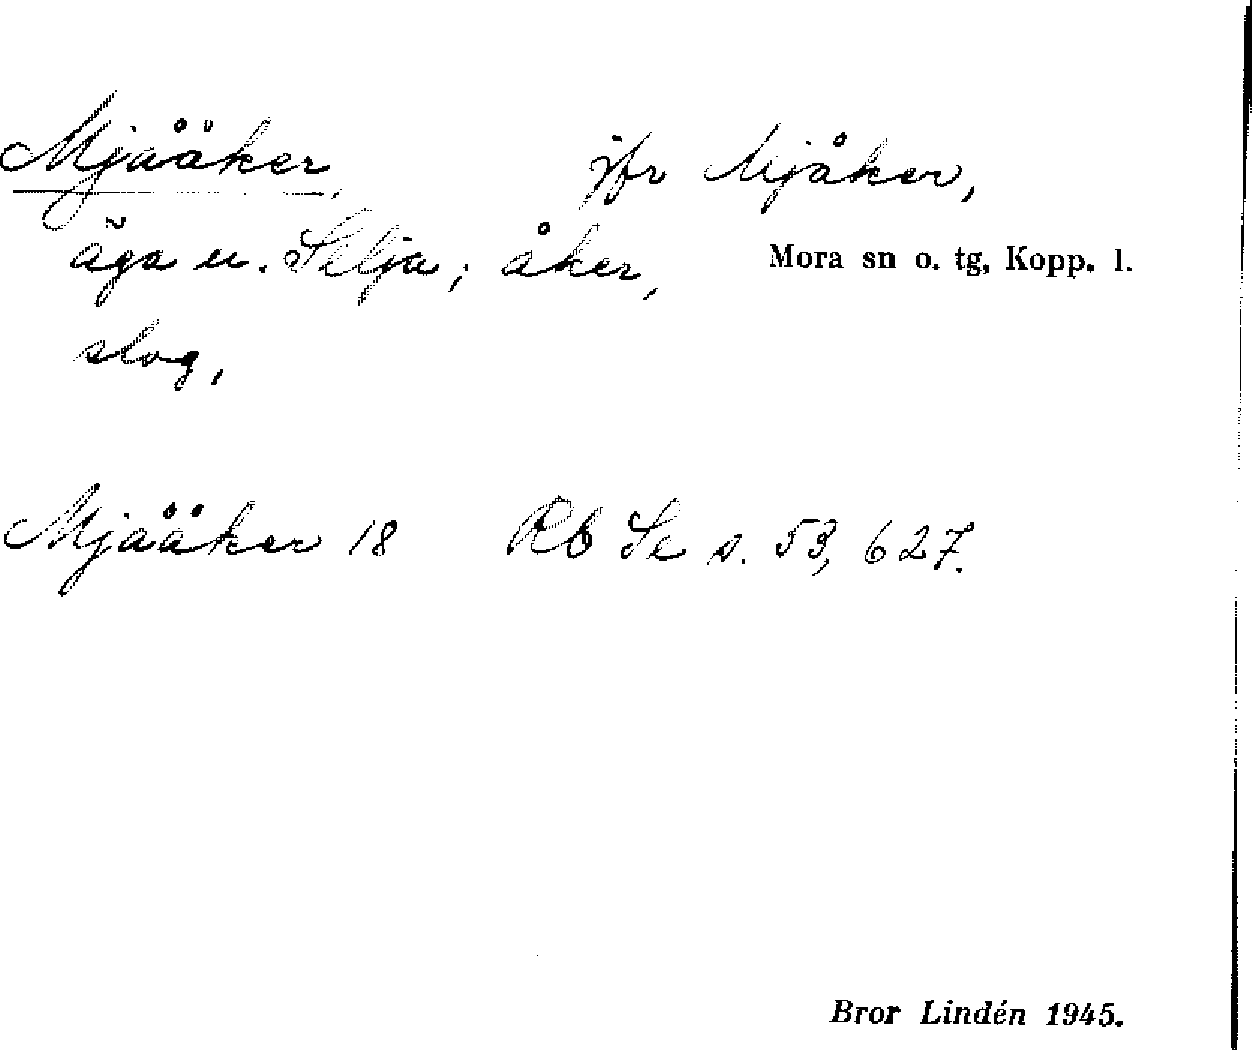 Mjååker, jfr Mjåker,
äga u. Selja; åker, Mora sn o. tg, Kopp. l.
slog,
Mjååker 18 Rb Se s. 53, 627.
Bror Lindén 1945.